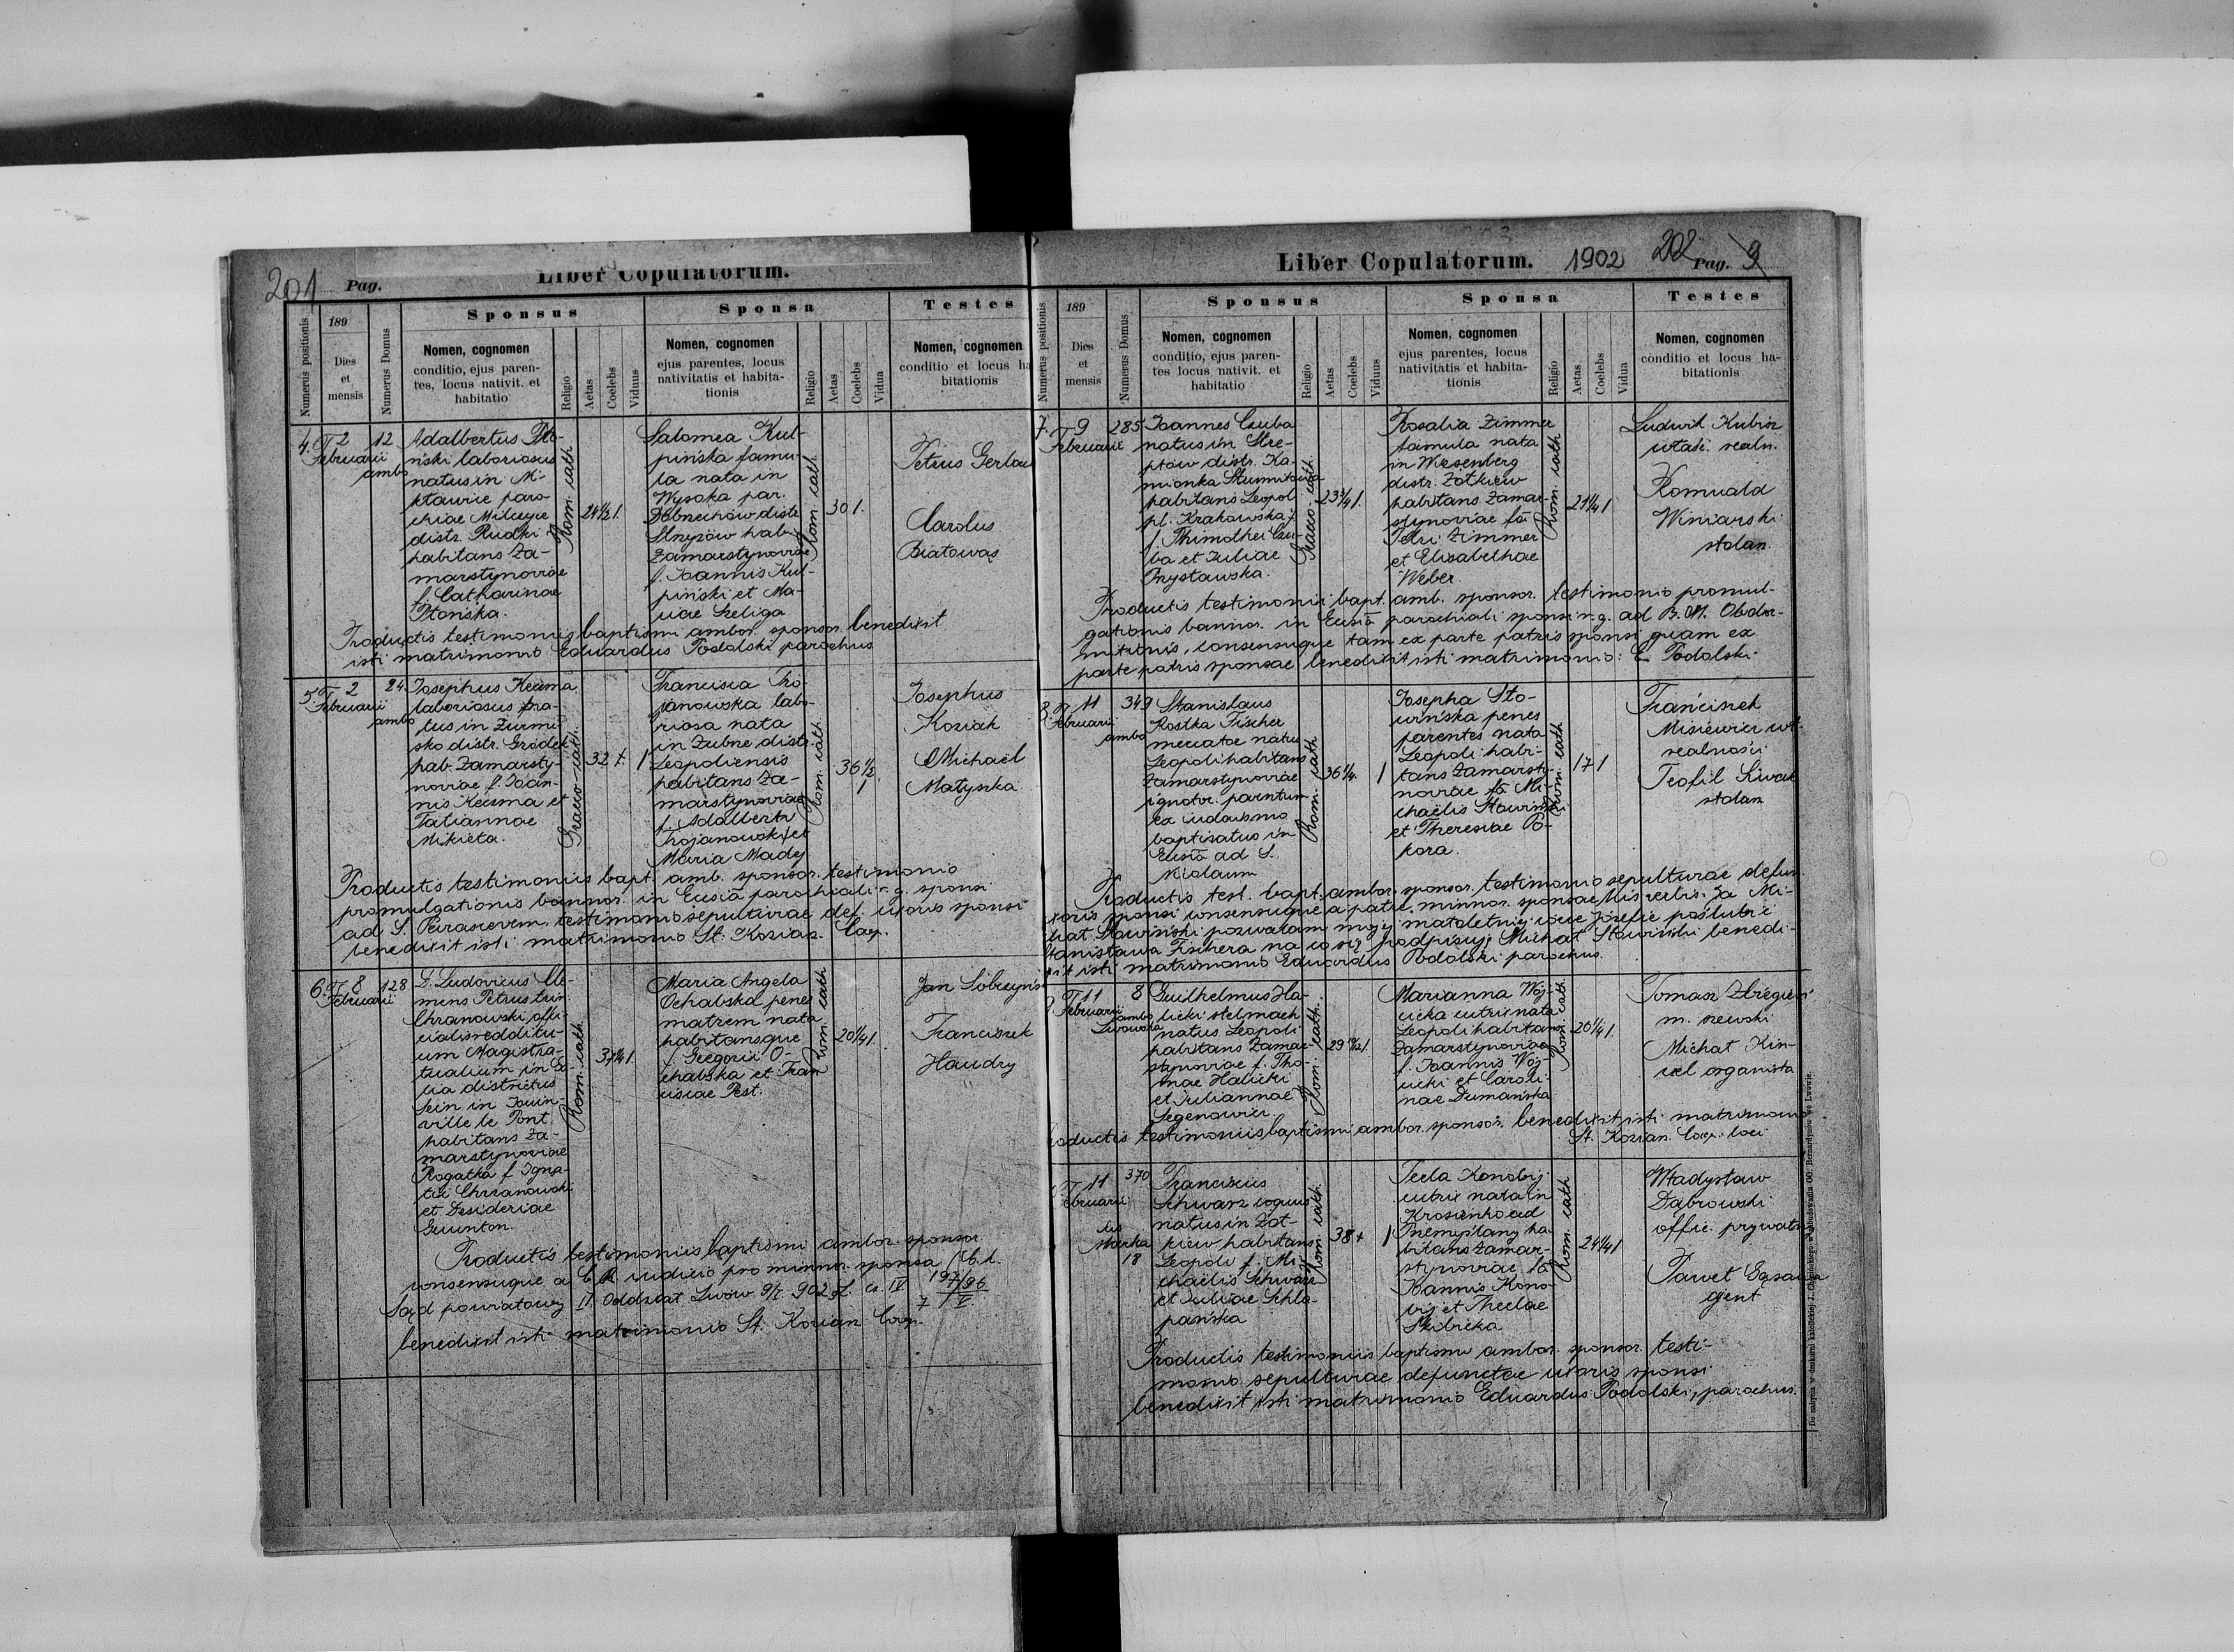 201 Pag.
Liber Copulatorum.
Numerus positionis
189
Dies
et
mensis
Numerus Domus
Sponsus
Nomen, cognomen
conditio, ejus paren-
tes, locus nativit. et
habitatio
Religio
Aetas
Coelebs
Viduus
Sponsa
Nomen, cognomen
ejus parentes, locus
nativitatis et habita-
tionis
Religio
Aetas
Coelebs
Vidua
Testes
Nomen, cognomen
conditio et locus ha
bitationis
4. 2
Februarii
12
ambo
Adalbertus Pło-
ński laboriosus
natus in Mi-
kławice paro
chiae Milczyce
distr. Rudki
habitans Za-
marstynoviae
f. Catharinae
Płońska.
Rom. cath.
24 1/2 1.
Salomea Kul-
pińska famu-
la nata in
Wysoka par.
Dobrzechów distr
Strzyżów hab.
Zamarstynoviae
f. Joannis Kul-
piński et Ma-
riae Szeliga
Rom. cath.
30 1.
Petrus Gerlau
Carolus
Białowąs
Productis testimoniis baptismi ambor. sponsor. benedixit
isti matrimonio Eduardus Podolski parochus
5. 2
Februarii
24
ambo
Josephus Keczma
laboriosus na-
tus in Zurmi
sko distr. Gródek
hab. Zamarsty-
noviae f. Joan-
nis Keczma et
Tatiannae
Mikieta.
Graeco-cath.
32 1
Francisca Tro-
janowska labo-
riosa nata
in Zubrze distr.
Leopoliensis
habitans Za-
marstynoviae
f. Adalberti
Trojanowski et
Maria Madej
Rom. cath.
36 1/2
1
Josephus
Koziak
Michael
Matyszka
Productis testimoniis bapt. amb. sponsor. testimonio
promulgationis bannor. in Ecclsia parochiali r. g. sponsi
ad S. Parascevem, testimonio sepulturae def. uxoris sponsi
benedixit isti matrimonio St. Kozian. Coop.
6. 8
Februarii
128
D. Ludovicus Cle-
mens Petrus trin.
Chranowski offi-
cialis redditu-
um Magistra-
tualium in
lia districtus
Sein in Join-
ville le Pont
habitans Za-
marstynoviae
Rogatka f. Igna-
tii Chranowski
et Desideriae
Guinton.
Rom. cath.
37 1/4 1.
Maria Angela
Ochabska penes
matrem nata
habitansque
f. Gregorii O-
chabska et Fran
ciscae Pest.
Rom. cath
20 1/4 1.
Jan Sobczyński
Franciszek
Haudry
Productis testimoniis baptismi ambor. sponsor.
consensuque a C. R. iudicio pro minnor. sponsa (C. k.
Sąd powiatowy II Oddział Lwów 9/I. 902 L. cz. IV. 197/96
7 V.
benedixit isti matrimonio St. Kozian Coop.
Liber Copulatorum. 1902 202 Pag. 9
Numerus positionis
189
Dies
et
mensis
Numerus Domus
Sponsus
Nomen, cognomen
conditio, ejus paren-
tes locus nativit. et
habitatio
Religio
Aetas
Coelebs
Viduus
Sponsa
Nomen, cognomen
ejus parentes, locus
nativitatis et habita-
tionis
Religio
Aetas
Coelebs
Vidua
Testes
Nomen, cognomen
conditio et locus ha-
bitationis
7. 9
Februarii
285
Joannes Czuba
natus in Stre-
ptów distr. Ka-
mionka Strumiłowa
habitans Leopol
pl. Krakowska
f. Thimothei Czu-
ba et Juliae
Przystawska.
Graeco. cath.
23 3/4 1.
Rosalia Zimmer
famula nata
in Wiesenberg
distr. Zółkiew
habitans Zamar-
stynoviae fa
Petri Zimmer
et Elisabethae
Weber.
Rom. cath
21 1/4 1
Ludwik Kubisz
właśc. realn.
Romuald
Winiarski
stolarz.
Productis testimonii bapt. amb. sponsor. testimonio promul-
gationis bannor. in Ecclsia parochiali sponsi r. g. ad B. M. Obdor-
mitionis, consensuque tam ex parte patris sponsi quam ex
parte patris sponsae benedixit isti matrimonio: E. Podolski
8. 11
Februarii
349
ambo
Stanislaus
Kostka Fischer
mercator natus
Leopoli habitans
Zamarstynoviae
ignotor. parentum
ex iudaismo
baptisatus in
Ecclsia ad S.
Nicolaum
Rom. cath
36 1/4. 1
Josepha Sło-
wińska penes
parentes nata
Leopoli habi-
tans Zamarsty-
noviae fa Mi-
chaëlis Słowiński
et Theresiae Po-
kora.
Rom. cath
17 1
Franciszek
Misiewicz wł.
realności
Teofil Siwak
stolarz
Productis test. bapt. ambor. sponsor. testimonio sepulturae defun.
uxoris sponsi consensuque a patre minnor. sponsae his verbis: Ja Mi-
chał Słowiński pozwalam mojej małoletniej córce Józefie poślubić
Stanisława Fischera na co się podpisuję Michał Słowiński benedi-
xit isti matrimonio Eduardus Podolski parochus.
11
Februarii
8
ambo
Lwowska
Guilhelmus Ha-
licki stelmach
natus Leopoli
habitans Zamar-
stynoviae f. Tho-
mae Halicki
et Juliannae
Segenowicz
Rom. cath.
29 1/2 1.
Marianna Wój-
cicka cutrix nata
Leopoli habitans
Zamarstynoviae
f. Joannis Wój-
cicki et Caroli-
nae Dumańska
Rom. cath
20 1/4 1.
Tomasz Zbiegień
m. szewski
Michał Kin-
cel organista
Productis testimoniis baptismi ambor. sponsor. benedixit isti matrimonio
St. Kozian. Coop. loci
11
Februarii
370
Marka
18
Franciscus
Schwarz coquus
natus in Żół-
kiew habitans
Leopoli f. Mi-
chaëlis Schwarz
et Juliae Schla-
pańska
Rom. cath.
38 1
Tecla Konobij
cutrix nata in
Krosienko ad
Przemyślany ha-
bitans Zamar-
stynoviae fa
Joannis Kono-
bij et Theclae
Skibicka
Rom. cath
24 1/4 1
Władysław
Dąbrowski
offic. prywatny
Paweł Sąsawa
agent
Productis testimoniis baptismi ambor. sponsor. testi-
monio sepulturae defunctae uxoris sponsi
benedixit isti matrimonio Eduardus Podolski, parochus.
Do nabycia w drukarni katolickiej J. Chęcińskiego w zabudowaniu OO. Bernardynów we Lwowie.